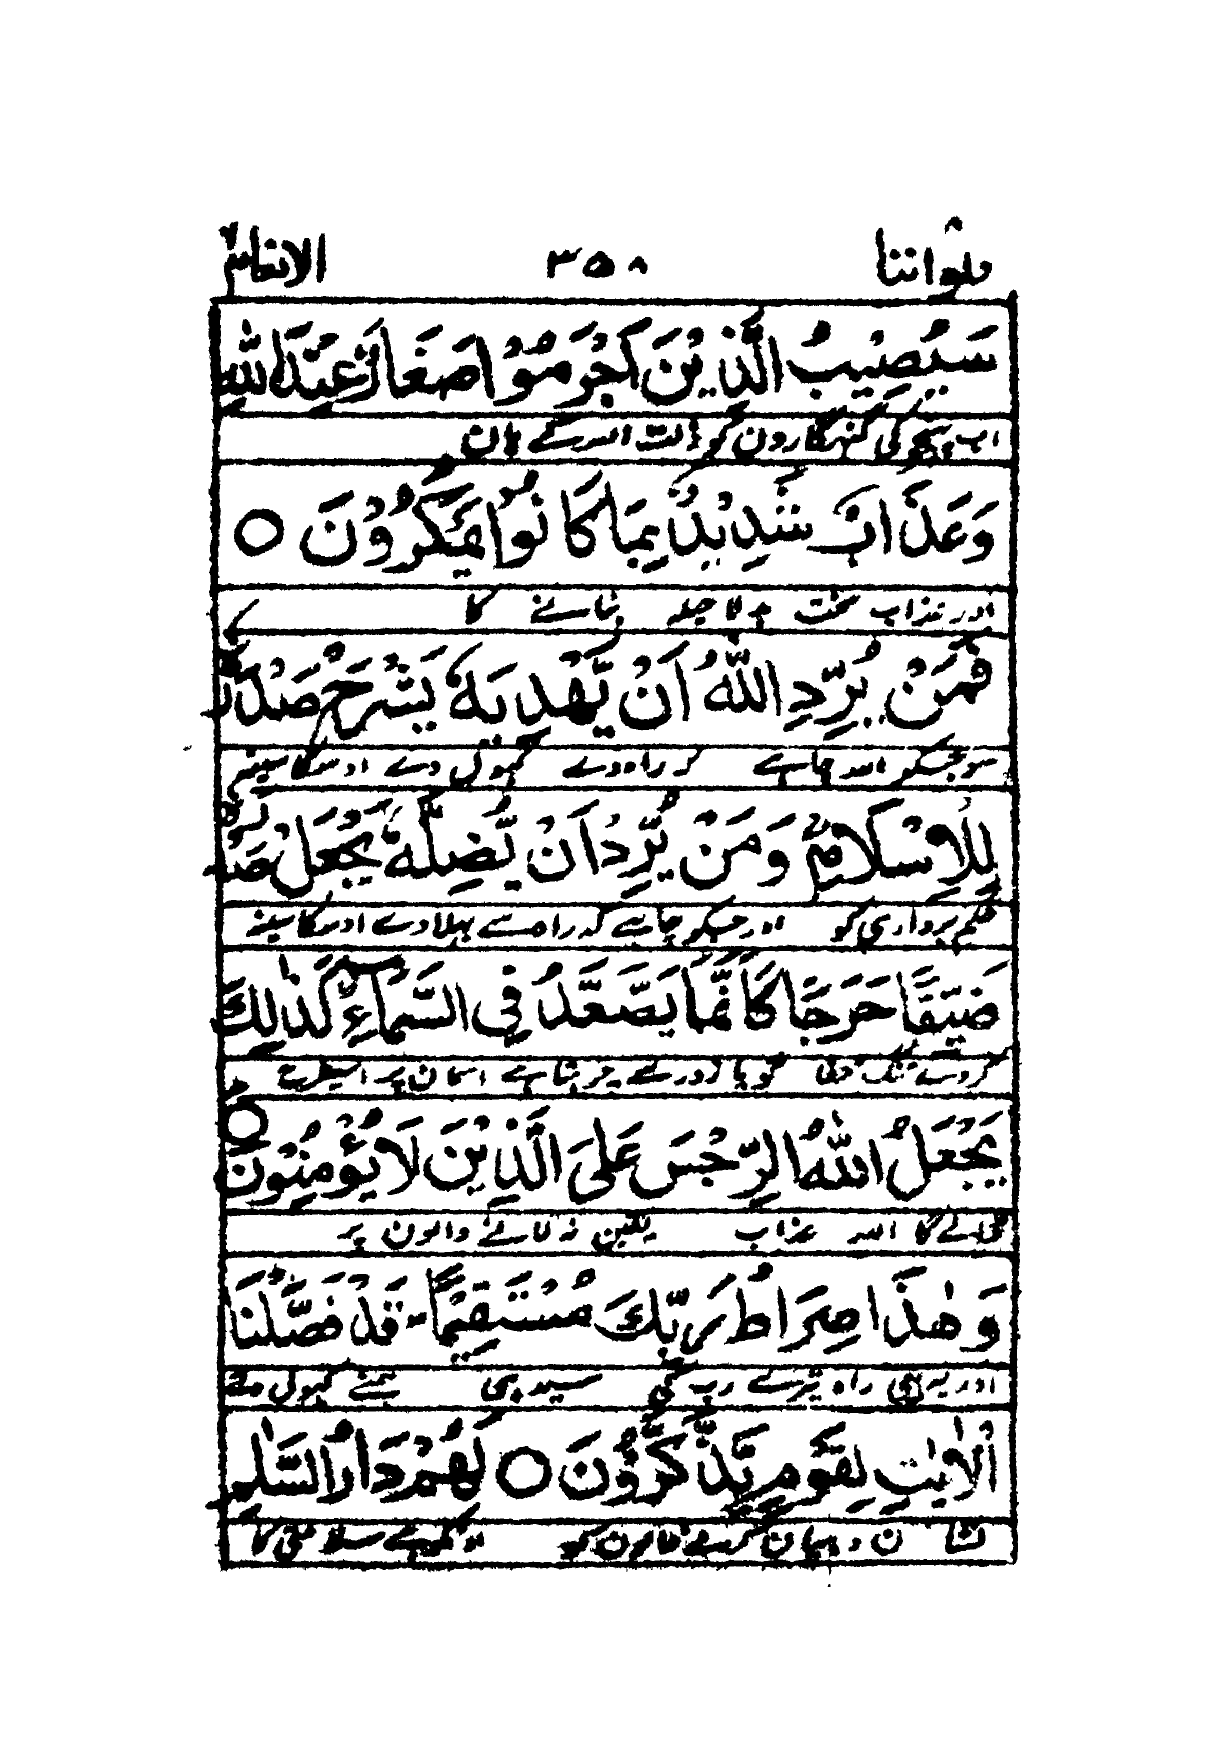 ولواننا ٨ ٣٥٨ الانعام ٦
سَيُصِيْبُ الَّذِيْنَ اَجْرَمُوْا صَغَارٌ عِنْدَ اللّٰهِ
اب پہنچے گی گنہگارون کو ذلت اللہ کے ہان
وَعَذَابٌ شَدِيْدٌۢ بِمَا كَانُوْا يَمْكُرُوْنَ ○
اور عذاب سخت بدلا حیلہ بنانے کا
فَمَنْ يُّرِدِ اللّٰهُ اَنْ يَّهْدِيَهٗ يَشْرَحْ صَدْرَهٗ
سو جسکو اللہ چاہے کہ راہ دے کہول دے اوسکا سینہ
لِلْاِسْلَامِ ۚ وَمَنْ يُّرِدْ اَنْ يُّضِلَّهٗ يَجْعَلْ صَدْرَهٗ
حکم برداری کو اور جسکو چاہے کہ راہ سے بہلا دے اوسکا سینہ
ضَيِّقًا حَرَجًا كَاَنَّمَا يَصَّعَّدُ فِى السَّمَآءِ ؕ كَذٰلِكَ
کر دے تنگ گویا زور سے چڑہتا ہے اسمان پر اسیطرح
يَجْعَلُ اللّٰهُ الرِّجْسَ عَلَى الَّذِيْنَ لَا يُؤْمِنُوْنَ ○
ڈالے گا اللہ عذاب یقین نہ لانے والون پر
وَهٰذَا صِرَاطُ رَبِّكَ مُسْتَقِيْمًا ؕ قَدْ فَصَّلْنَا
اور یہ ہی راہ تیرے رب کی سیدہی ہمنے کہول دئے
الْاٰيٰتِ لِقَوْمٍ يَّذَّكَّرُوْنَ ○ لَهُمْ دَارُ السَّلٰمِ
نشان دہیان کرنے والون کو اونکو ہے سلامتی کا